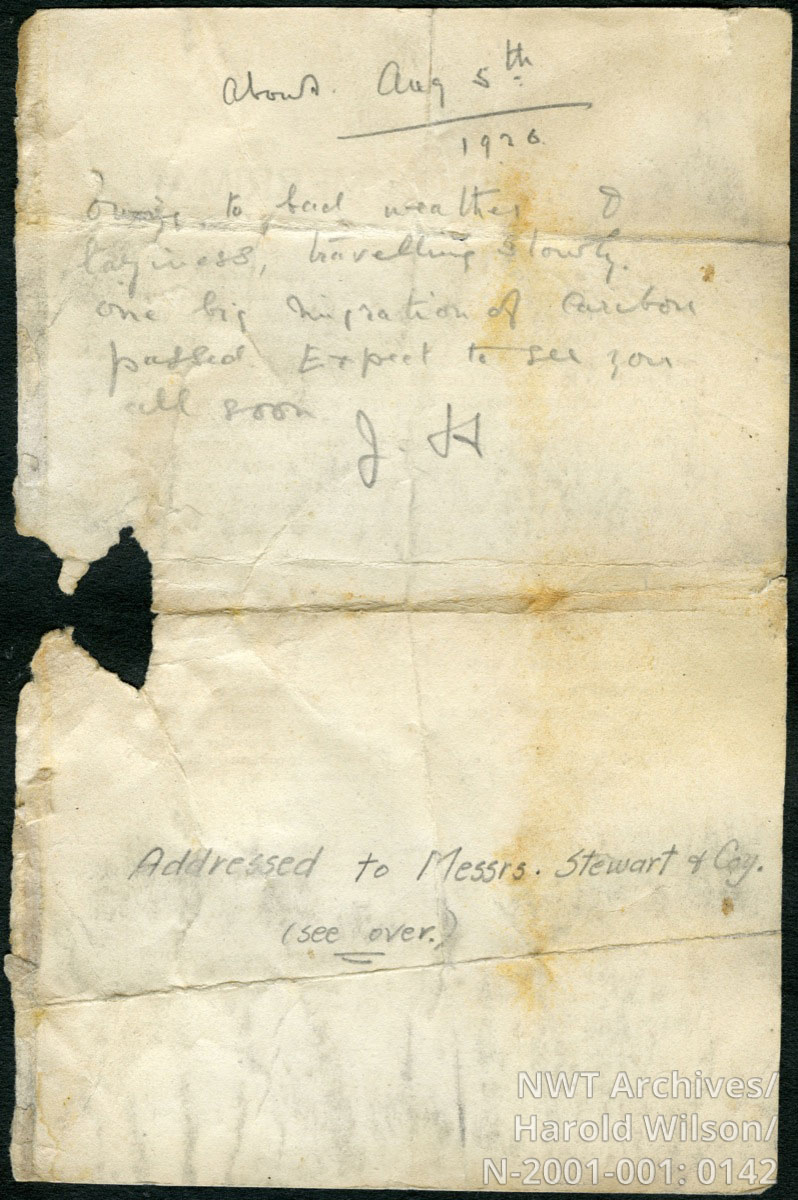 About. Aug 5th
1926
Owing to bad weather &
laziness, travelling slowly.
one big migration of Caribou
passed. Expect to see you
all soon
J. H
Addressed to Messrs. Stewart & Coy.
(see over.)
NWT Archives/
Harold Wilson/
N-2001-001: 0142